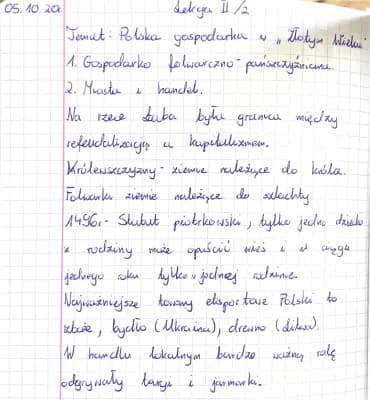 05.10.20r. Lekcja II/2
Temat: Polska gospodarka w „Złotym Wieku"
1. Gospodarka folwarczno-pańszczyźniana
2. Miasta i handel.
Na rzece Łaba była granica między
refeudalizacją a kapitalizmem.
Królewszczyzny - ziemie należące do króla.
Folwarki ziemie należące do szlachty
1496r- Statut piotrkowski, tylko jedno dziecko
z rodziny może opuścić wieś i w ciągu
jednego roku tylko w jednej rodzinie.
Najważniejsze towary eksportowe Polski to
zboże, bydło (Ukraina), drewno (Litwa).
W handlu lokalnym bardzo ważną rolę
odgrywały targi i jarmarki.